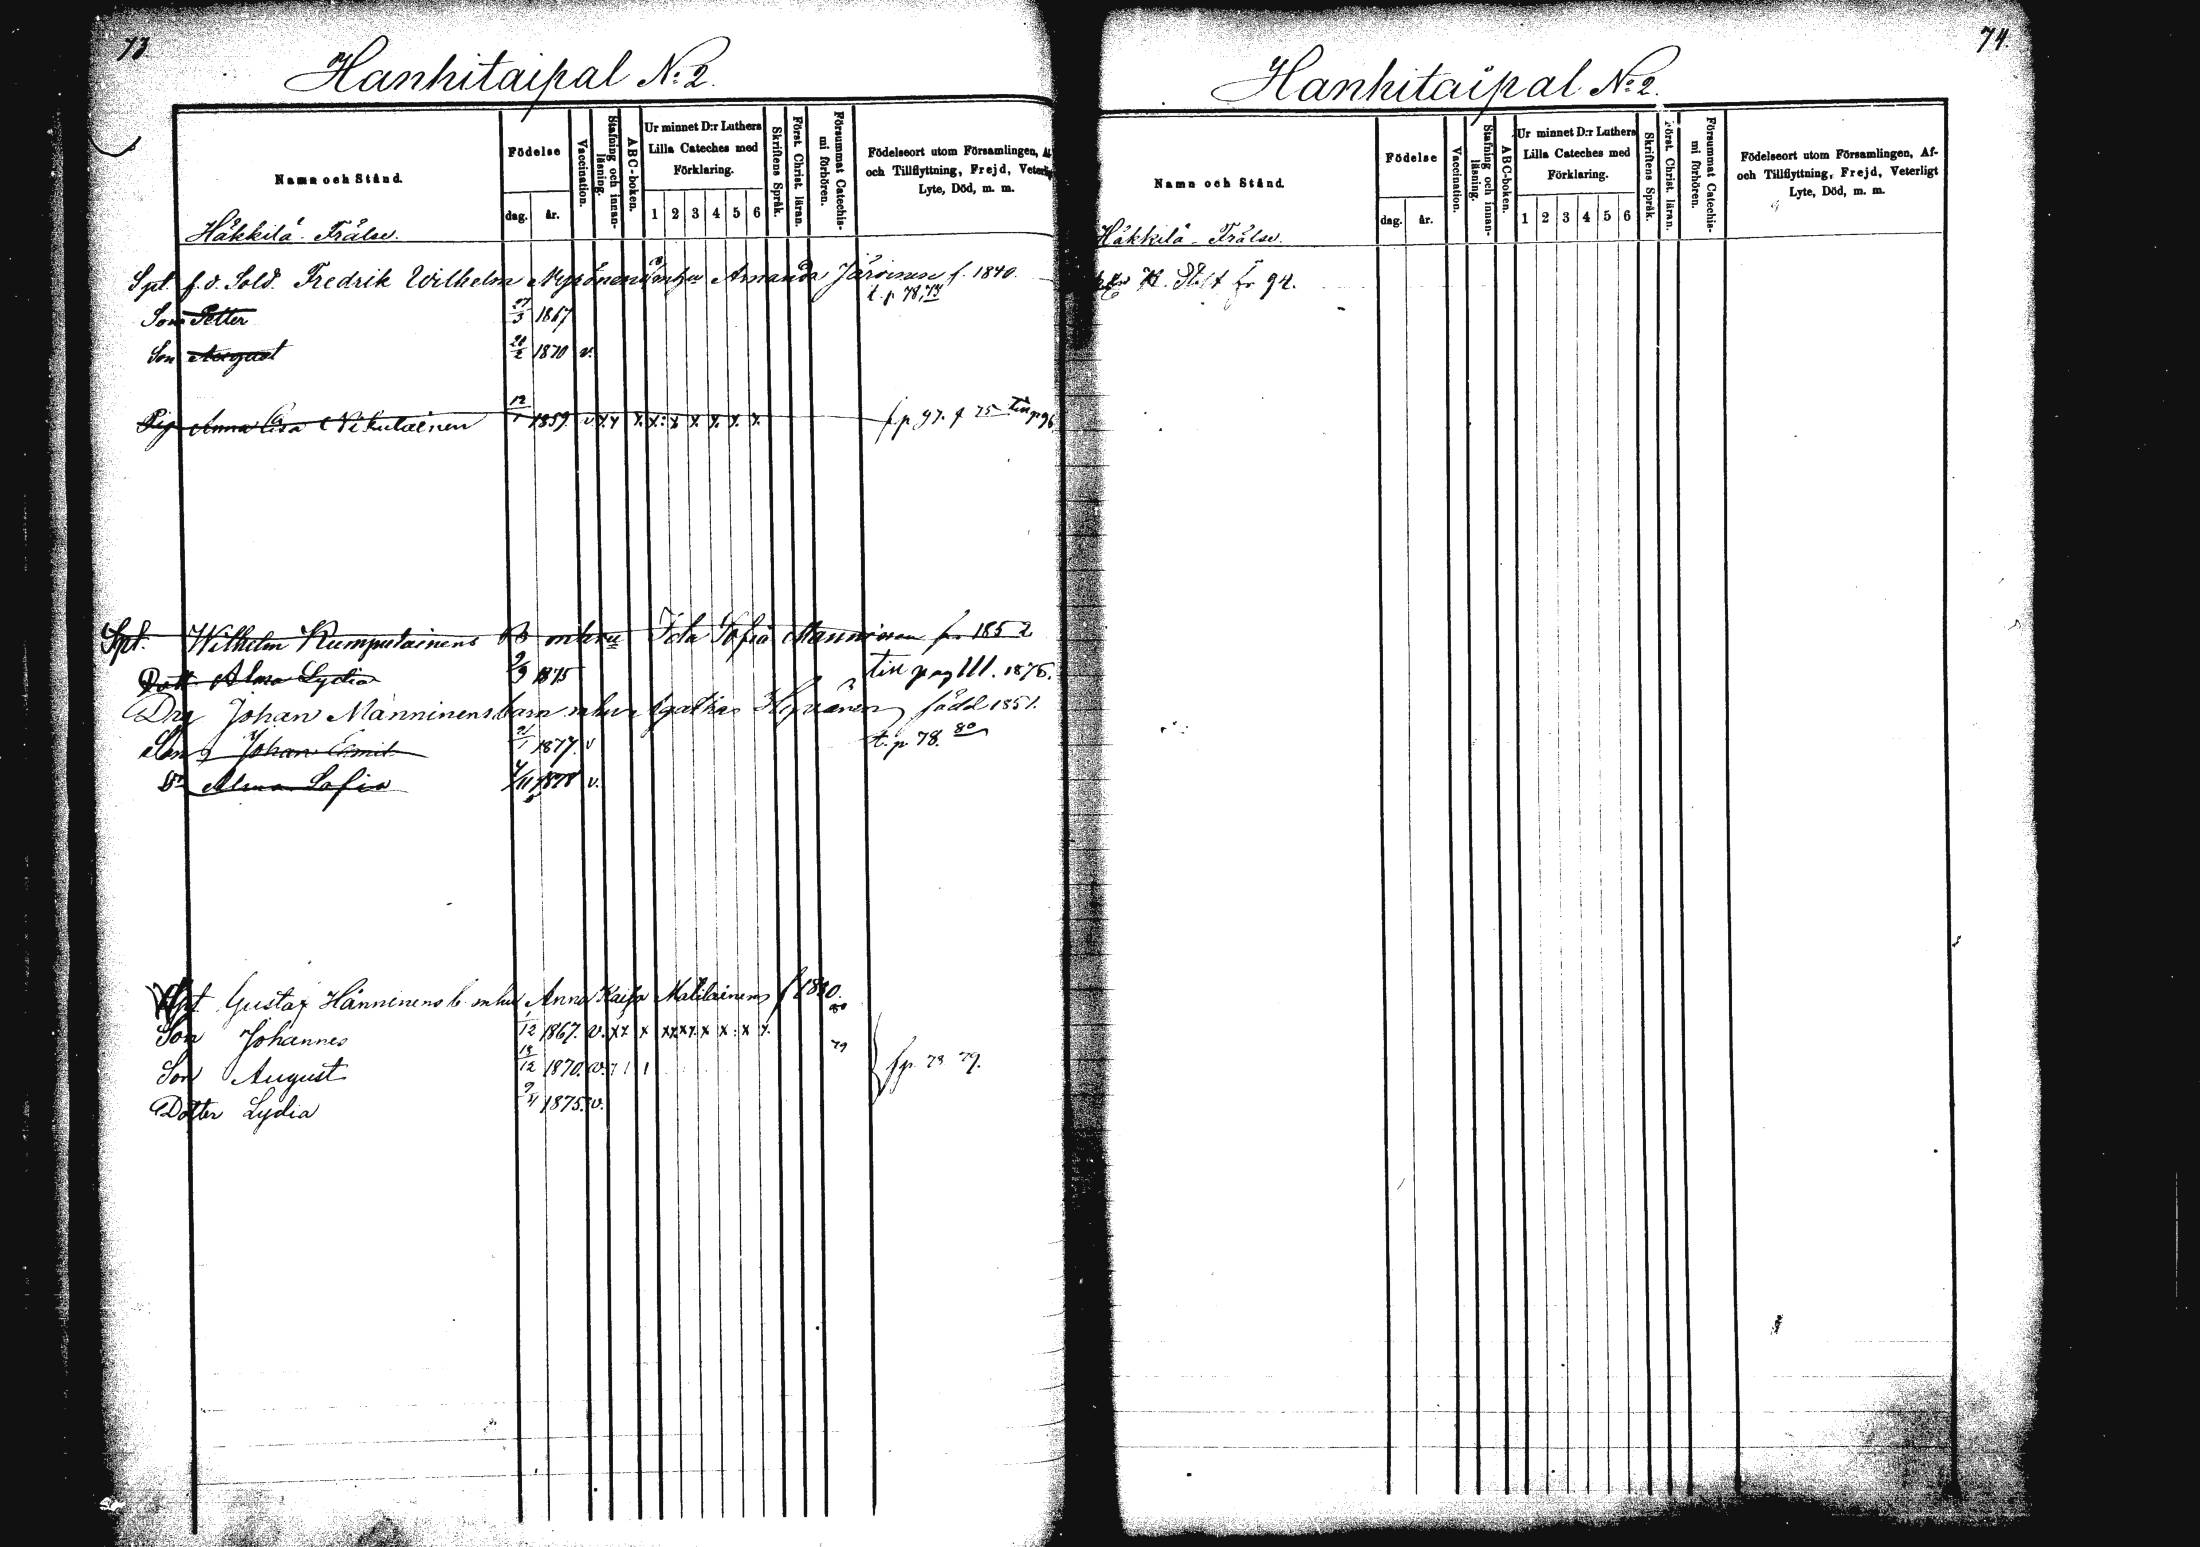 73.
Hanhitaipal No: 2.
Namn och Stånd.
Födelse
dag. år.
Vaccination.
Stafning och innanläsning.
ABC-boken.
Ur minnet D:r Luthers Lilla Cateches med Förklaring.
1 2 3 4 5 6
Skriftens Språk.
Först. Christ. läran.
Försummat Catechismi förhören.
Födelseort utom Församlingen, Af-
och Tillflyttning, Frejd, Veterligt
Lyte, Död, m. m.
Häkkilä - Frälse.
Spt. f. d. Sold. Fredrik Wilhelm Amanda Järvinen f. 1840.
t. p 78, 73
Son Petter 27/3 1867
Son August 20/2 1870 v.
Pig Anna Nikulainen 12/1 1859 v
f p 97. f 75 till p 96
Spt. Wilhelm Kumpulainens B. mhu Ida Sofia Manninen f. 1852
Dott. Alma Lydia 2/9 1875 till pag 111. 1876.
Drg Johan Manninens barn mhu Agatha Hyvönen född 1851.
Son Johan Emil 21/1 1877. v t. p 78. 80
Dr Alma Sofia 1878 v.
Spt Gustaf Hänninens b. mhu Anna Kaisa Matilainen f 1830.
80
Son Johannes 1/12 1867. v. x x x x x x x x x x
79
Son August 18/12 1870. v. 1 1 1 f p. 78 79.
Dotter Lydia 1875. v.
74.
Hanhitaipal No: 2.
Namn och Stånd.
Födelse
dag. år.
Vaccination.
Stafning och innanläsning.
ABC-boken.
Ur minnet D:r Luthers Lilla Cateches med Förklaring.
1 2 3 4 5 6
Skriftens Språk.
Först. Christ. läran.
Försummat Catechismi förhören.
Födelseort utom Församlingen, Af-
och Tillflyttning, Frejd, Veterligt
Lyte, Död, m. m.
Häkkilä - Frälse.
94.